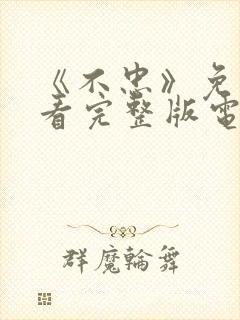 《不忠》免
看完整版電
群魔輪舞